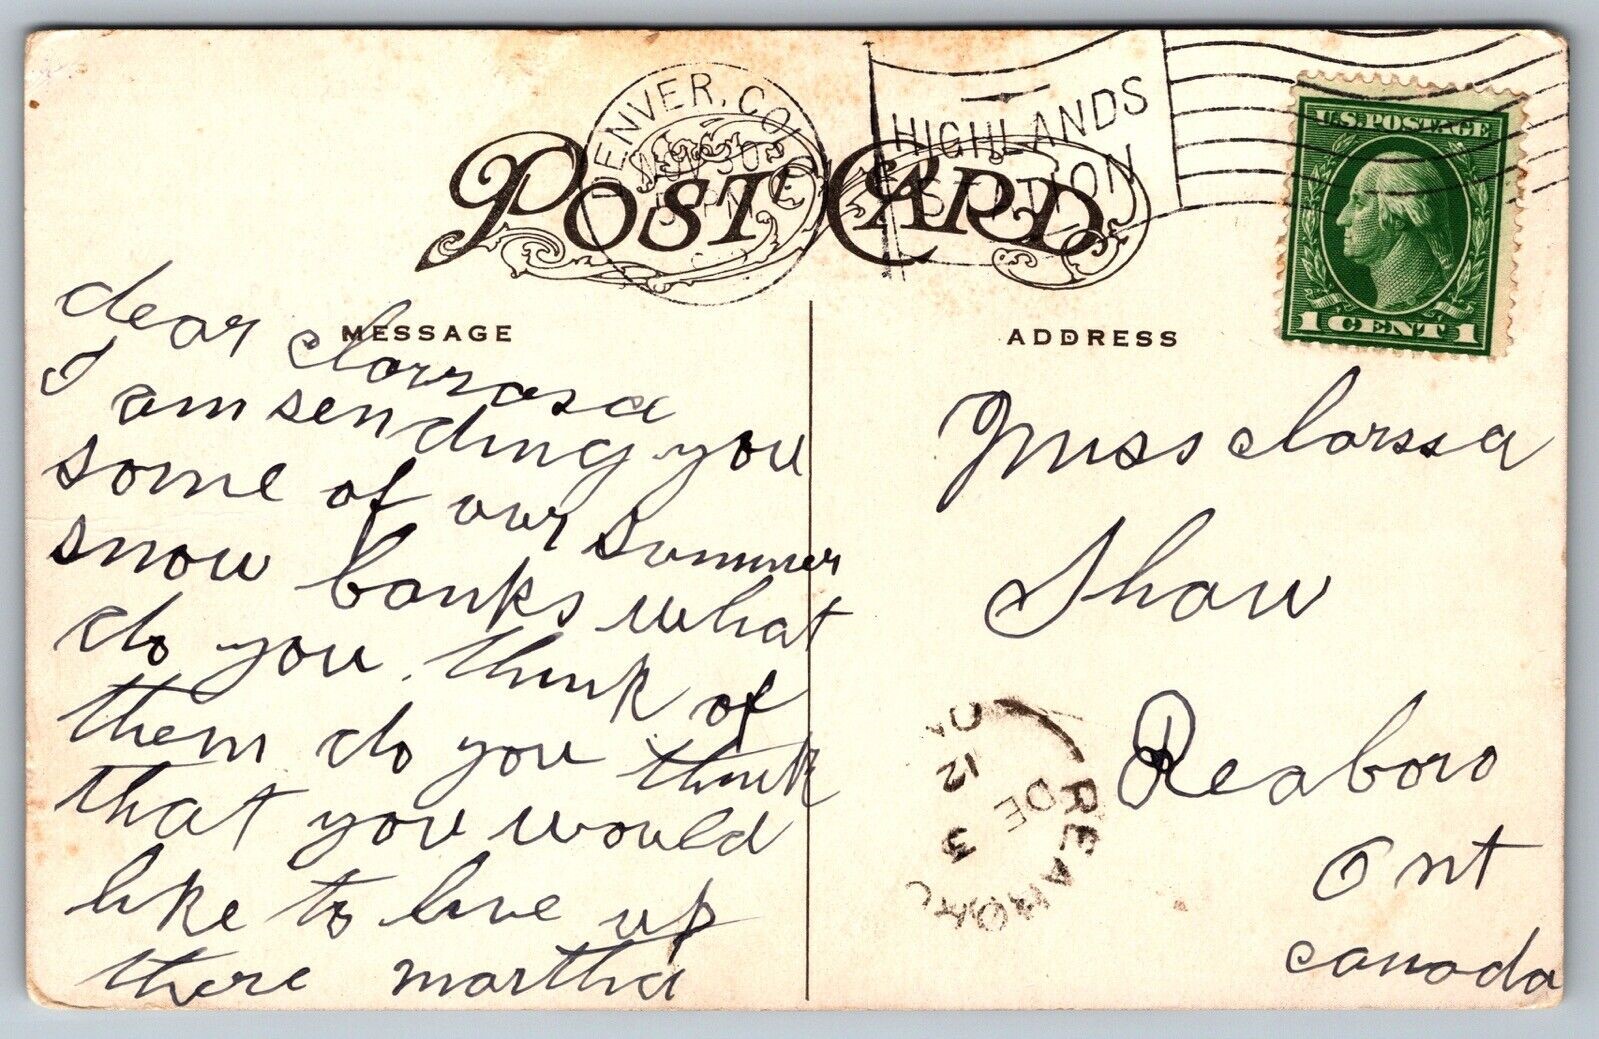 DENVER, COLO.
NOV 30
5 PM
HIGHLANDS
STATION
U.S. POSTAGE
1 CENT 1
POST CARD
MESSAGE
ADDRESS
dear clorrasa
I am sending you
some of our summer
snow banks what
do you think of
them do you think
that you would
like to live up
there martha
Miss clorssa
Shaw
Reaboro
Ont
canada
REABORO
DE 3
12